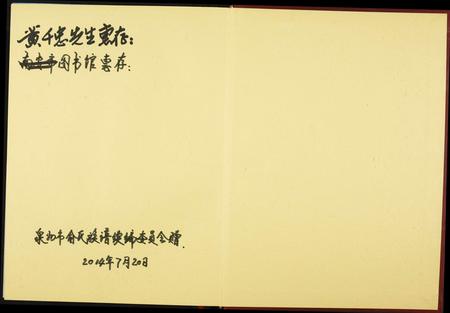 黄千忠先生惠存:
南安市图书馆惠存:
泉州市俞氏族谱续编委员会赠.
2014年7月20日